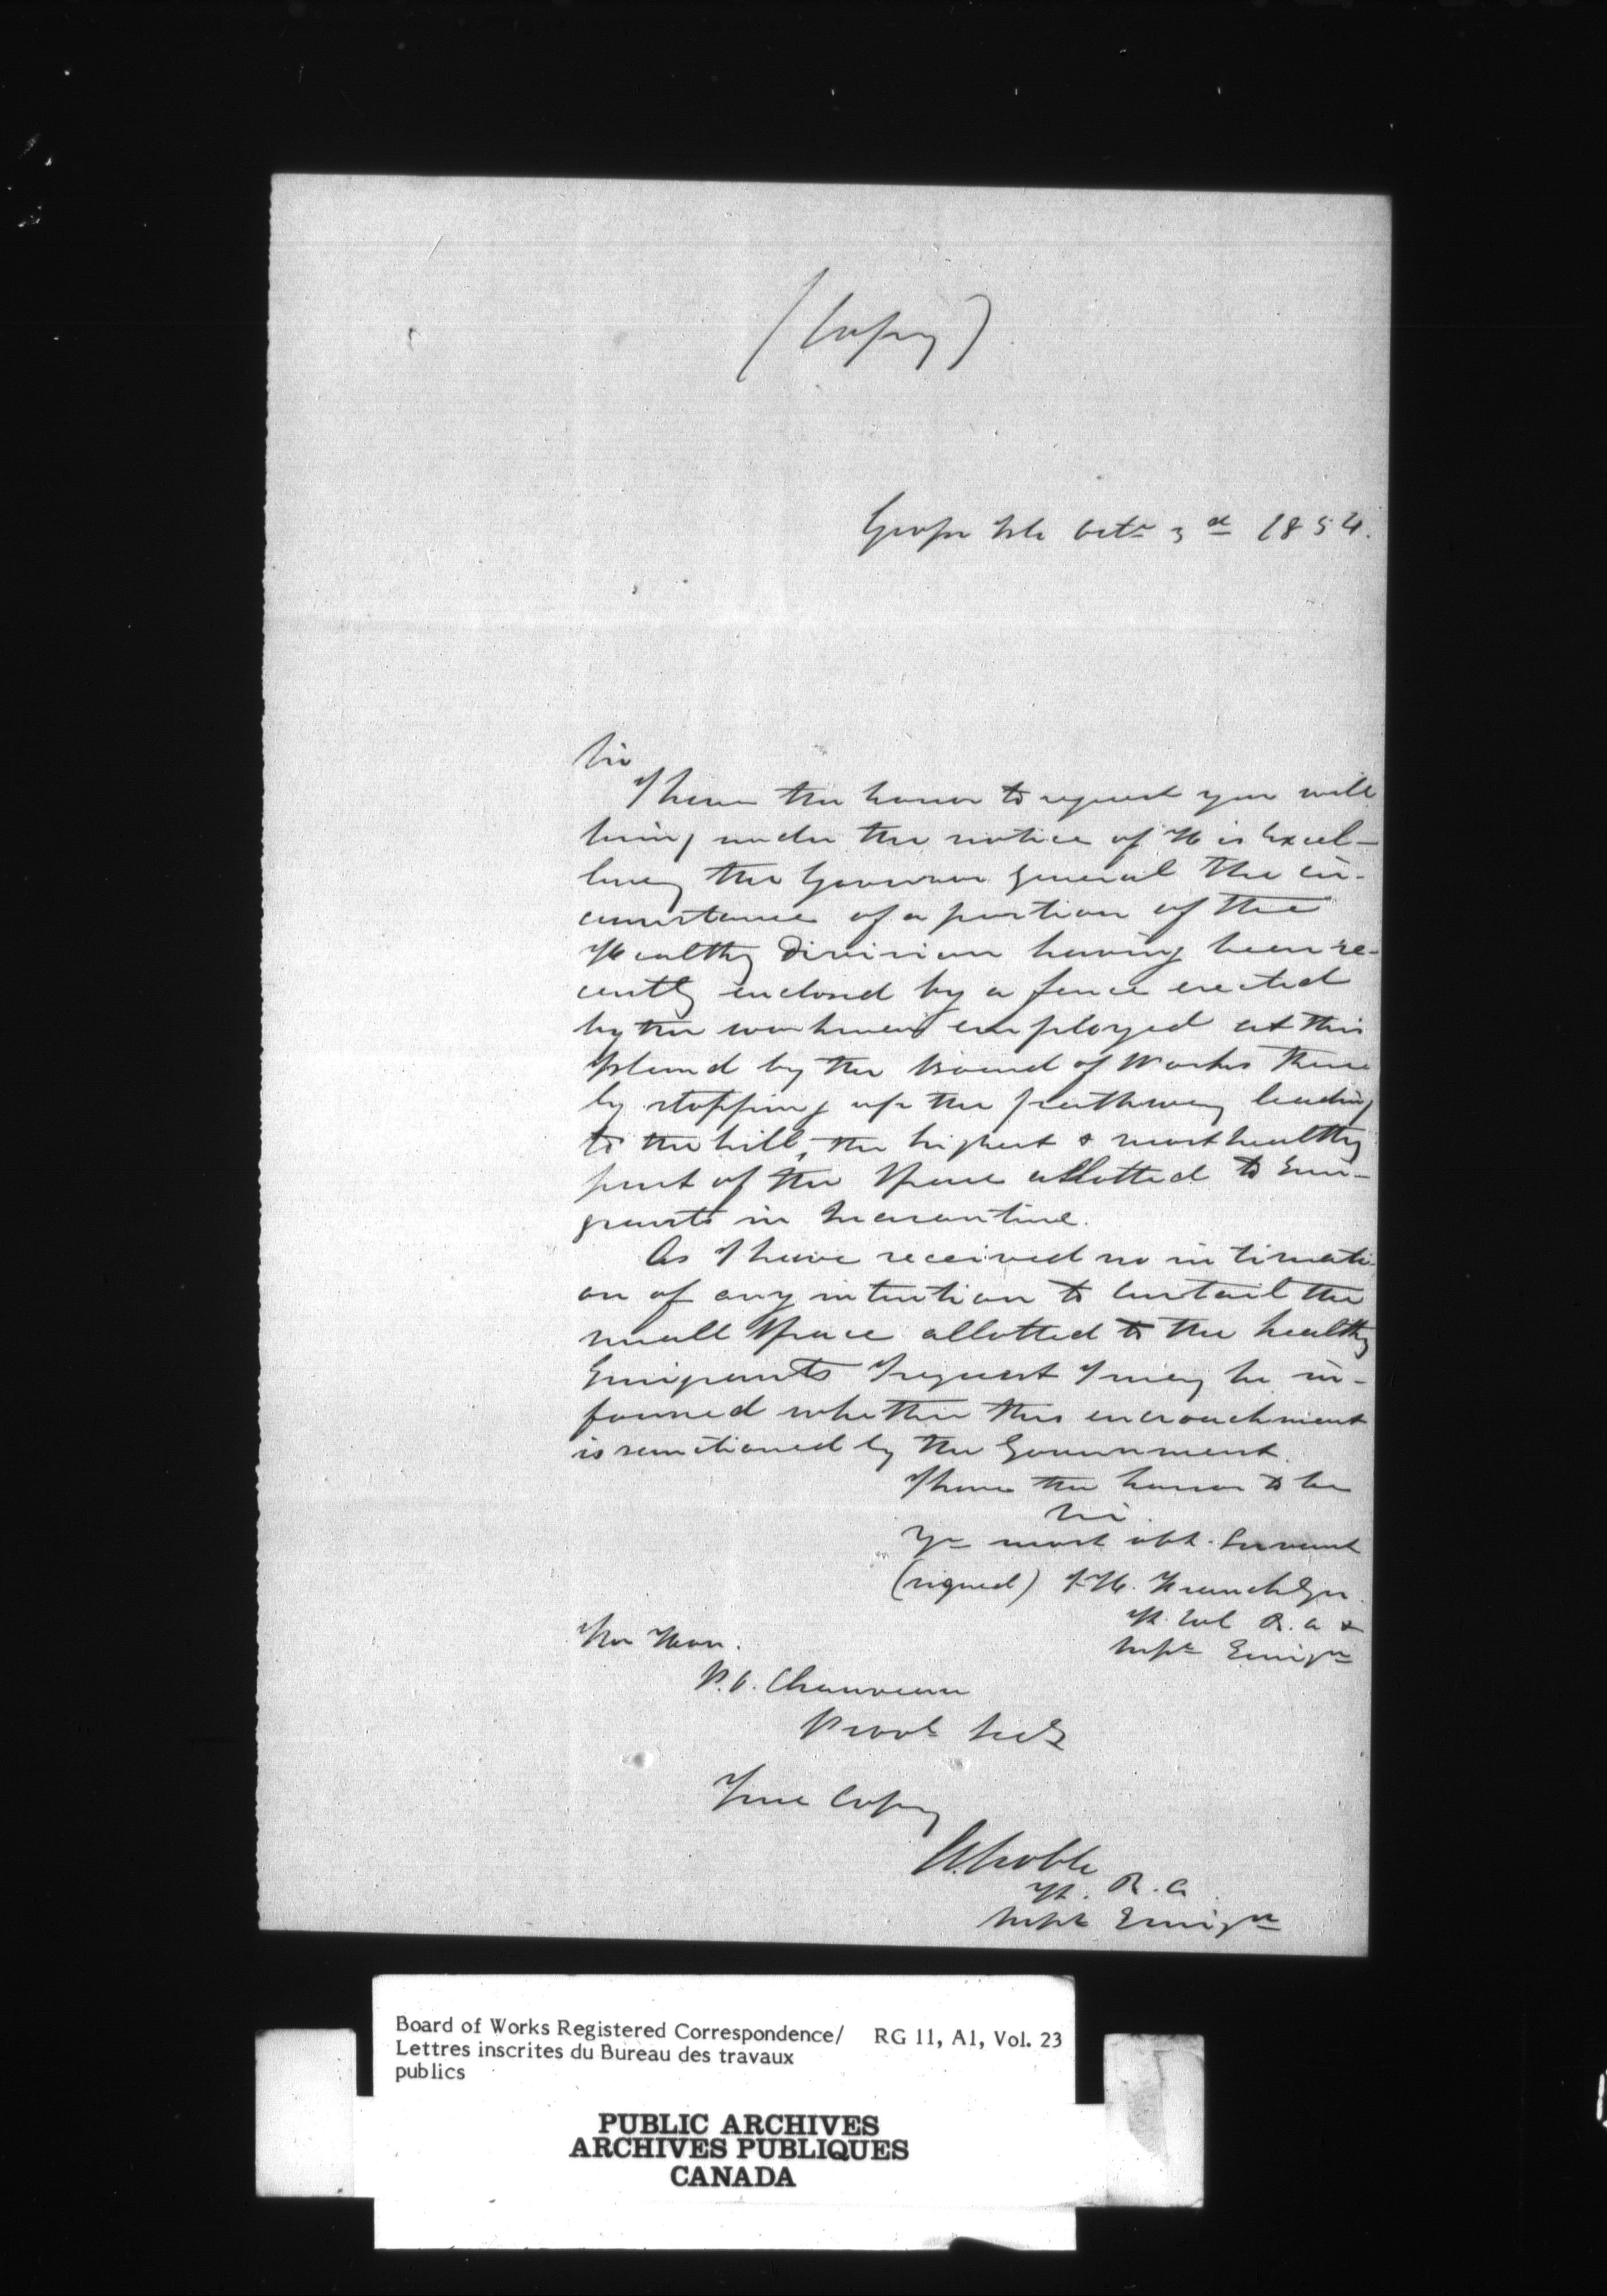 (Copy)
Grosse Isle Octr 3d 1854.
Sir
I have the honor to request you will
bring under the notice of His Excel-
lency the Governor General the cir-
cumstance of a portion of the
Healthy Division having been re-
cently enclosed by a fence erected
by the workmen employed at this
Island by the Board of Works there
by stopping up the pathway leading
to the hill, the highest & most healthy
part of the Space allotted to Emi-
grants in Quarantine.
As I have received no intimati-
on of any intention to Curtail the
small Space allotted to the healthy
Emigrants I request I may be in-
formed whether this encroachment
is sanctioned by the Government.
I have the honor to be
Sir
Yr most obt. Servant
(signed)
Lt. Col R. A &
Supt Emign
The Hon.
P. O. Chauveau
Provl Secy
True Copy
Noble
Lt. R. A
Supt Emign
Board of Works Registered Correspondence/ RG 11, A1, Vol. 23
Lettres inscrites du Bureau des travaux
publics
PUBLIC ARCHIVES
ARCHIVES PUBLIQUES
CANADA